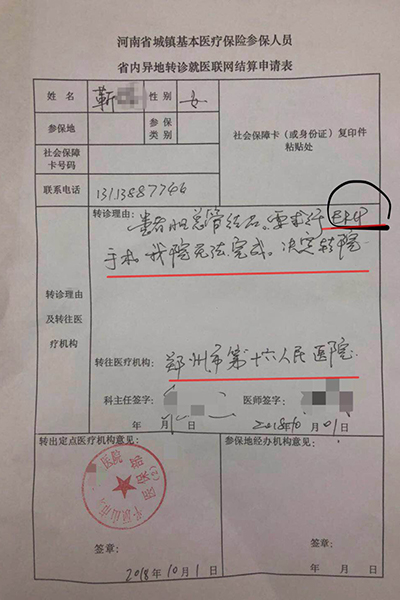 河南省城镇基本医疗保险参保人员
省内异地转诊就医联网结算申请表
姓 名 靳 性别 女
参保地 参保类别
社会保障卡（或身份证）复印件粘贴处
社会保障卡号码
联系电话 13113887746
转诊理由及转往医疗机构
转诊理由：患者胆总管结石。要求行ERCP
手术，我院无法完成。决定转院
转往医疗机构：郑州市第十六人民医院
科主任签字： 医师签字：
年 月 日 2018年10月01日
转出定点医疗机构意见：
参保地经办机构意见：
医院
医保部
(2)
平顶山市
签章：
签章：
2018年10月1日
年 月 日